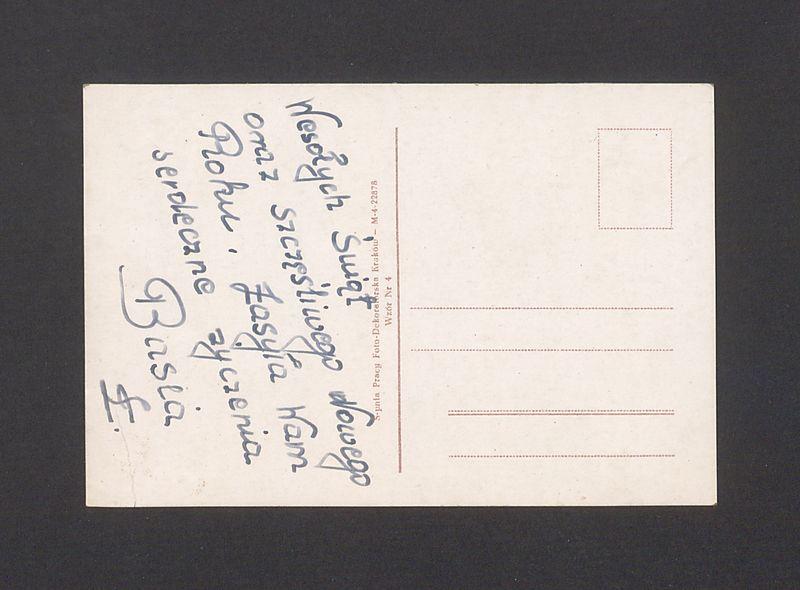 Wesołych Świąt
oraz szczęśliwego Nowego
Roku. Zasyła Wam
serdeczne życzenia
Basia
Ł.
S-pnia Pracy Foto-Dekoratorska Kraków — M-4-22878
Wzór Nr 4